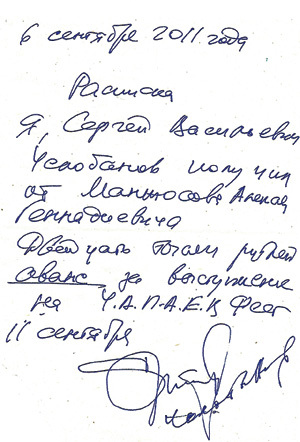 6 сентября 2011 года
Расписка
Я, Сергей Васильевич
Челобанов получил
от Манжосова Алексея
Геннадиевича
Двадцать тысяч рублей
аванс за выступление
на Ч.А.П.А.Е.В Фест
11 сентября